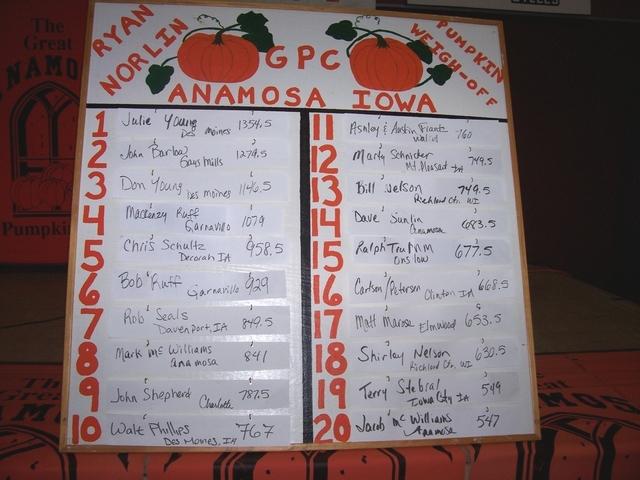 RYAN NORLIN
GPC
PUMPKIN WEIGH-OFF
ANAMOSA IOWA
1 Julie Young Des moines 1354.5
2 John Barlow Gays mills 1279.5
3 Don Young Des moines 1146.5
4 Mackenzy Ruff Garnavillo 1079
5 Chris Schultz Decorah IA 958.5
6 Bob Ruff Garnavillo 929
7 Rob Seals Davenport, IA 849.5
8 Mark McWilliams anamosa 841
9 John Shepherd Charlotte 787.5
10 Walt Phillips Des Moines, IA 767
11 Ashley & Austin Frantz 760
12 Marty Schnicker Mt. Pleasant IA 749.5
13 Bill Nelson Richland Ctr. WI 749.5
14 Dave Sunlin anamosa 683.5
15 Ralph Trumm Onslow 677.5
16 Carlson/Petersen Clinton IA 668.5
17 Matt Marose Elmwood 653.5
18 Shirley Nelson Richland Ctr. WI 630.5
19 Terry Stebral Iowa City IA 549
20 Jacob McWilliams Anamosa 547
The
Great
Pumpkin
The
Great